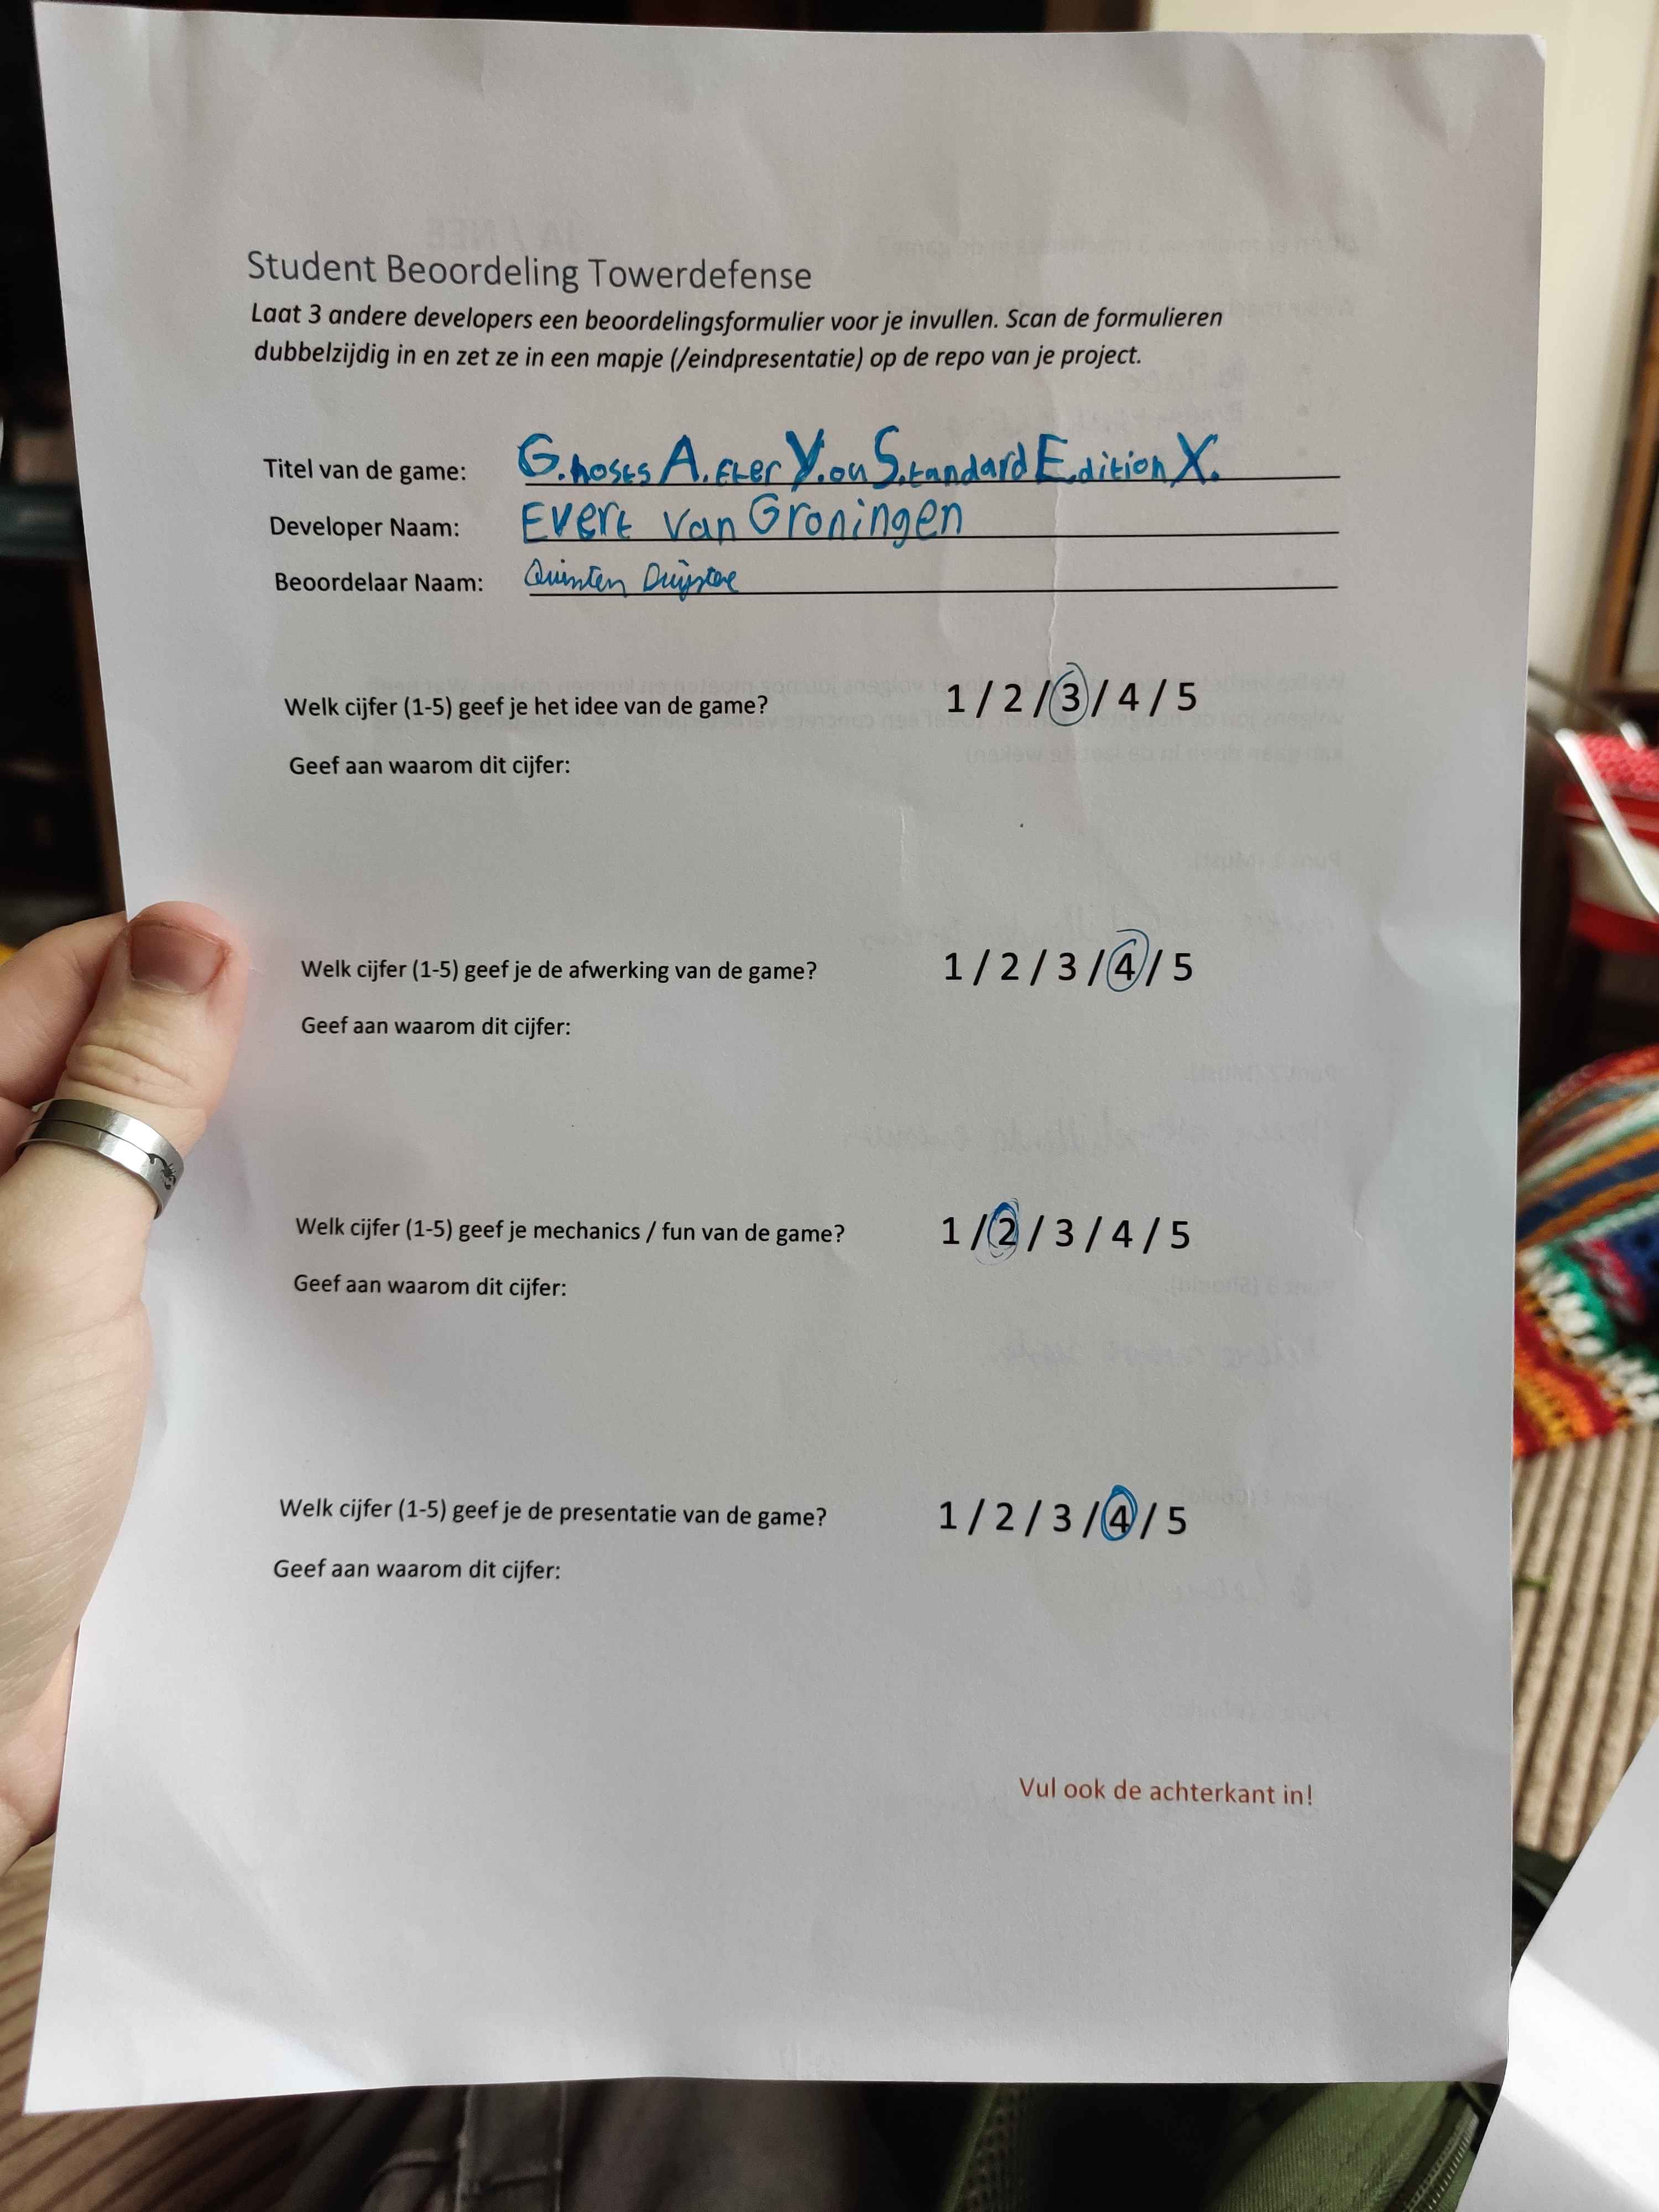 Student Beoordeling Towerdefense
Laat 3 andere developers een beoordelingsformulier voor je invullen. Scan de formulieren
dubbelzijdig in en zet ze in een mapje (/eindpresentatie) op de repo van je project.
Titel van de game: G.hosts A.fter Y.ou S.tandard E.dition X.
Developer Naam: Evert van Groningen
Beoordelaar Naam: Quinten
Welk cijfer (1-5) geef je het idee van de game? 1 / 2 / 3 / 4 / 5
Geef aan waarom dit cijfer:
Welk cijfer (1-5) geef je de afwerking van de game? 1 / 2 / 3 / 4 / 5
Geef aan waarom dit cijfer:
Welk cijfer (1-5) geef je mechanics / fun van de game? 1 / 2 / 3 / 4 / 5
Geef aan waarom dit cijfer:
Welk cijfer (1-5) geef je de presentatie van de game? 1 / 2 / 3 / 4 / 5
Geef aan waarom dit cijfer:
Vul ook de achterkant in!